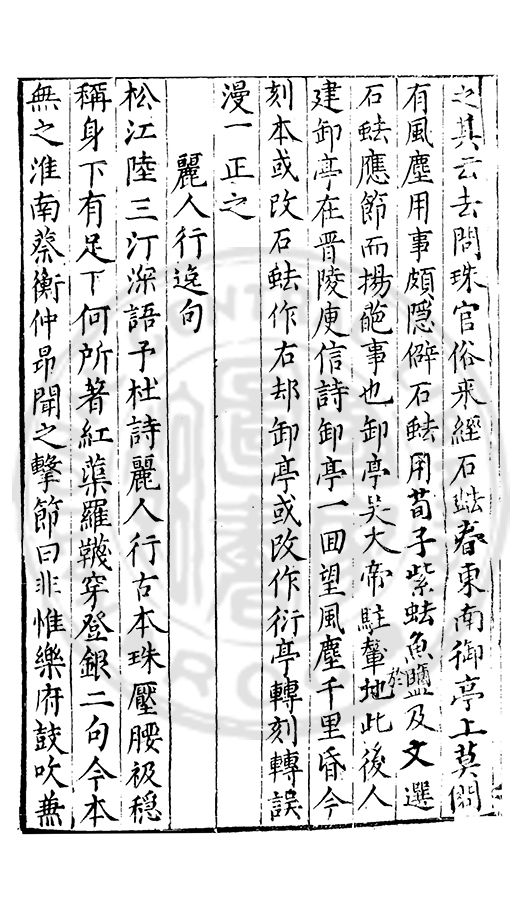 之其云去問珠官俗来經石蚨春東南御亭上莫問
有風塵用事頗隱僻石蚨用荀子紫蚨魚鹽及文選
石蚨應節而揚葩事也卸亭吳大帝駐輦地此後人
建卸亭在晋陵庾信詩卸亭一回望風塵千里昏今
刻本或改石蚨作右却卸亭或改作衍亭轉刻轉誤
漫一正之
麗人行逸句
松江陸三汀深語予杜詩麗人行古本珠壓腰衱穏
稱身下有足下何所著紅蕖羅韈穿登銀二句今本
無之淮南蔡衡仲昂聞之擊節曰非惟樂府鼓吹兼